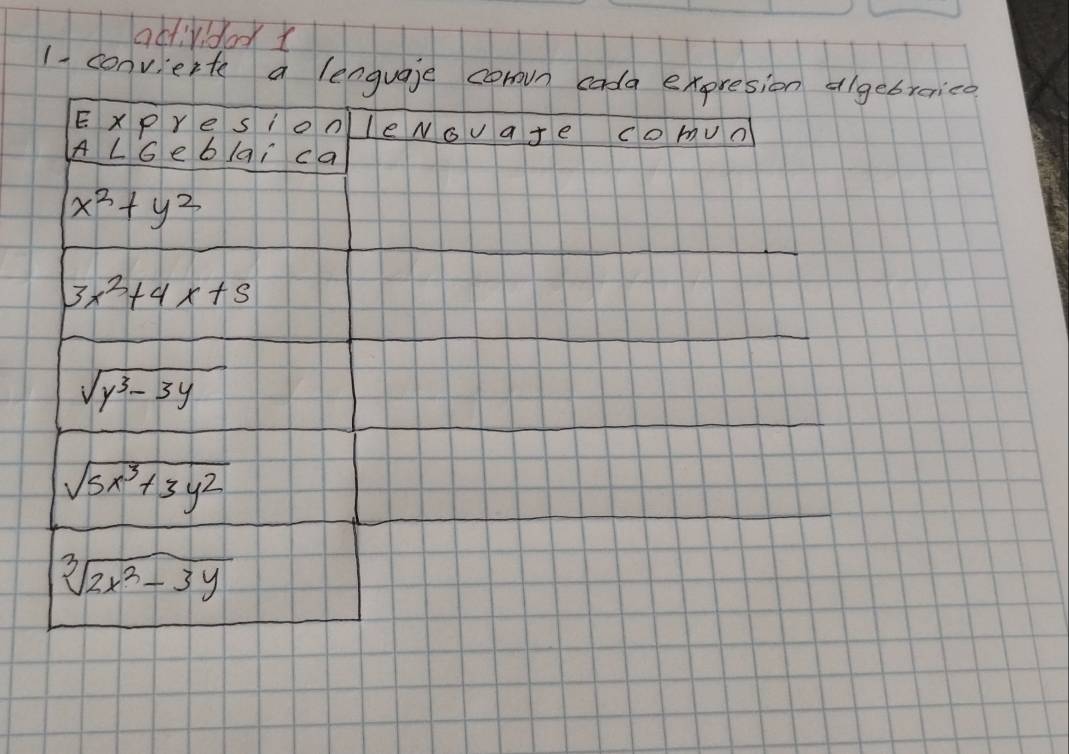 actividad 1
1- convierte a lenguaje comun cada expresion algebraica
Expresion leNGuaje comun
ALGeblaica
x² + y²
3x² + 4x + 5
√y³ - 3y
√5x³ + 3y²
∛2x² - 3y